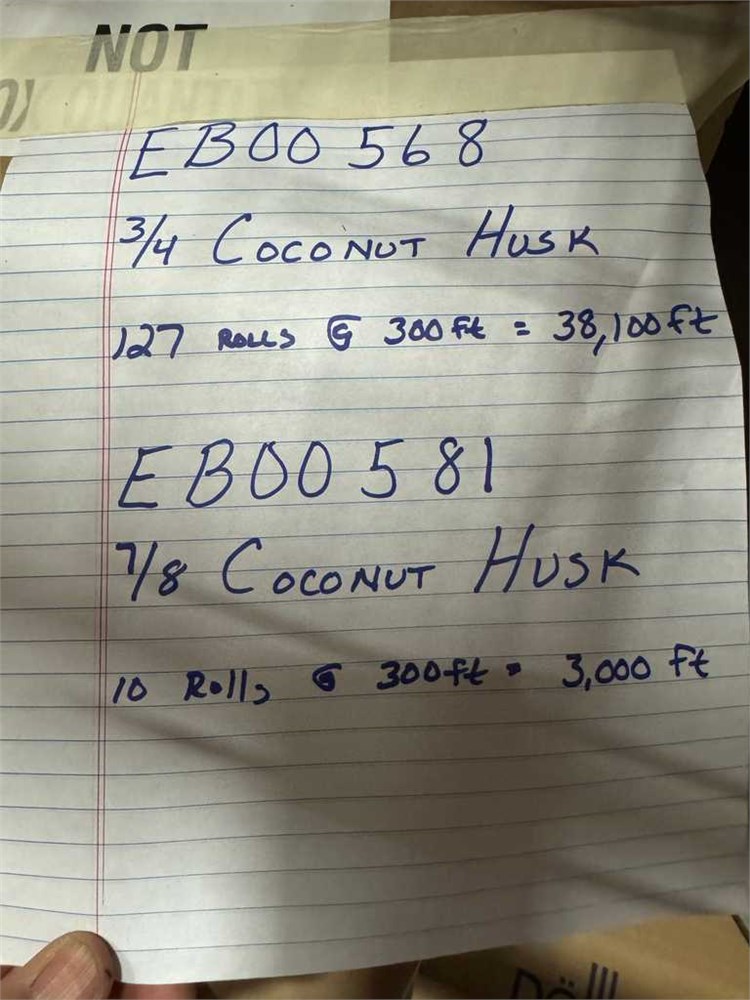 NOT
EB00568
3/4 COCONUT HUSK
127 ROLLS @ 300ft = 38,100ft
EB00581
7/8 COCONUT HUSK
10 Rolls @ 300ft = 3,000 ft